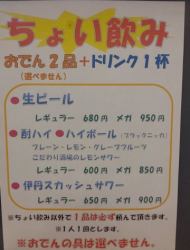 ちょい飲み
おでん2品+ドリンク1杯
(選べません)
●生ビール
レギュラー 680円 メガ 950円
●酎ハイ●ハイボール(ブラックニッカ)
プレーン・レモン・グレープフルーツ
こだわり酒場のレモンサワー
レギュラー 600円 メガ 850円
●伊丹スカッシュサワー
レギュラー 650円 メガ 900円
※ちょい飲み以外で1品は必ず頼んで頂きます。
※1人1回とします。
※おでんの具は選べません。